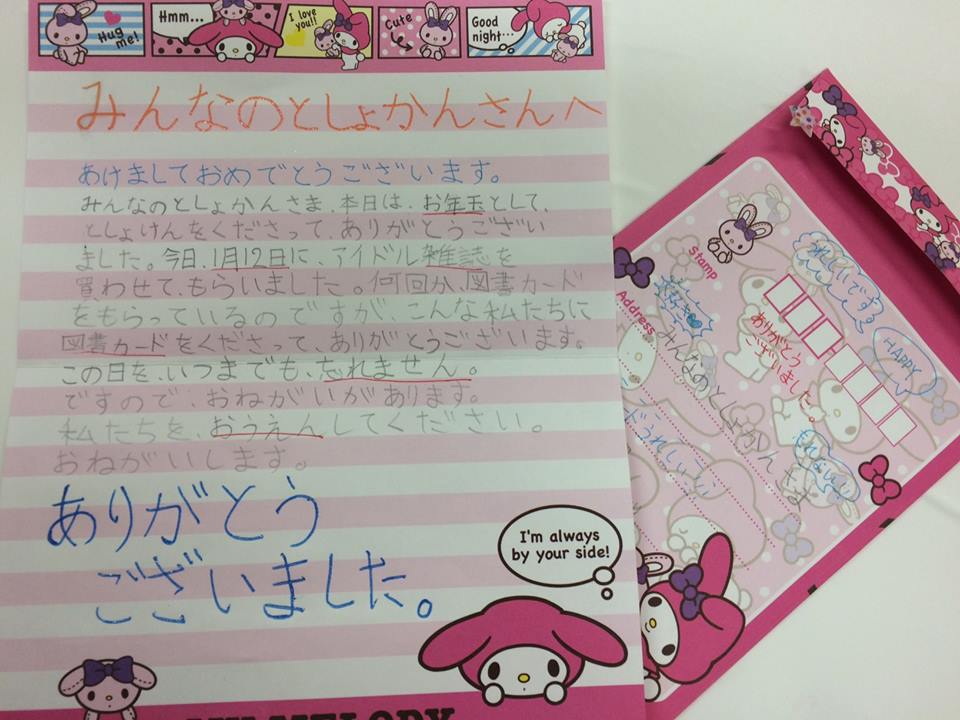 Hug me!
Hmm...
I love you!!
Cute
Good night...
みんなのとしょかんさんへ
あけましておめでとうございます。
みんなのとしょかんさま、本日は、お年玉として、
としょけんをくださってありがとうござい
ました。今日、1月12日に、アイドル雑誌を
買わせて、もらいました。何回か、図書カード
をもらっているのですが、こんな私たちに
図書カードをくださって、ありがとうございます。
この日を、いつまでも、忘れません。
ですので、おねがいがあります。
私たちを、おうえんしてください。
おねがいします。
ありがとう
ございました。
I'm always
by your side!
MY MELODY
Stamp
Address
うれしいです。
ありがとう
ございました。
HAPPY
大好き
みんなのとしょかん